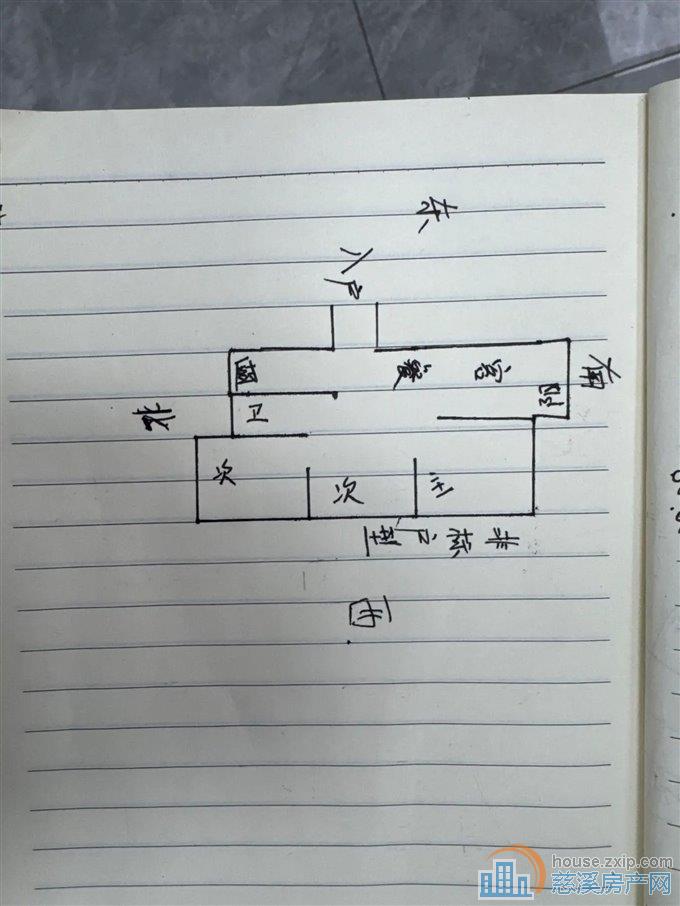 东
入户
厨
餐 客
阳
南
北
卫
次
次
主
非标户型
西
house.zxip.com
慈溪房产网